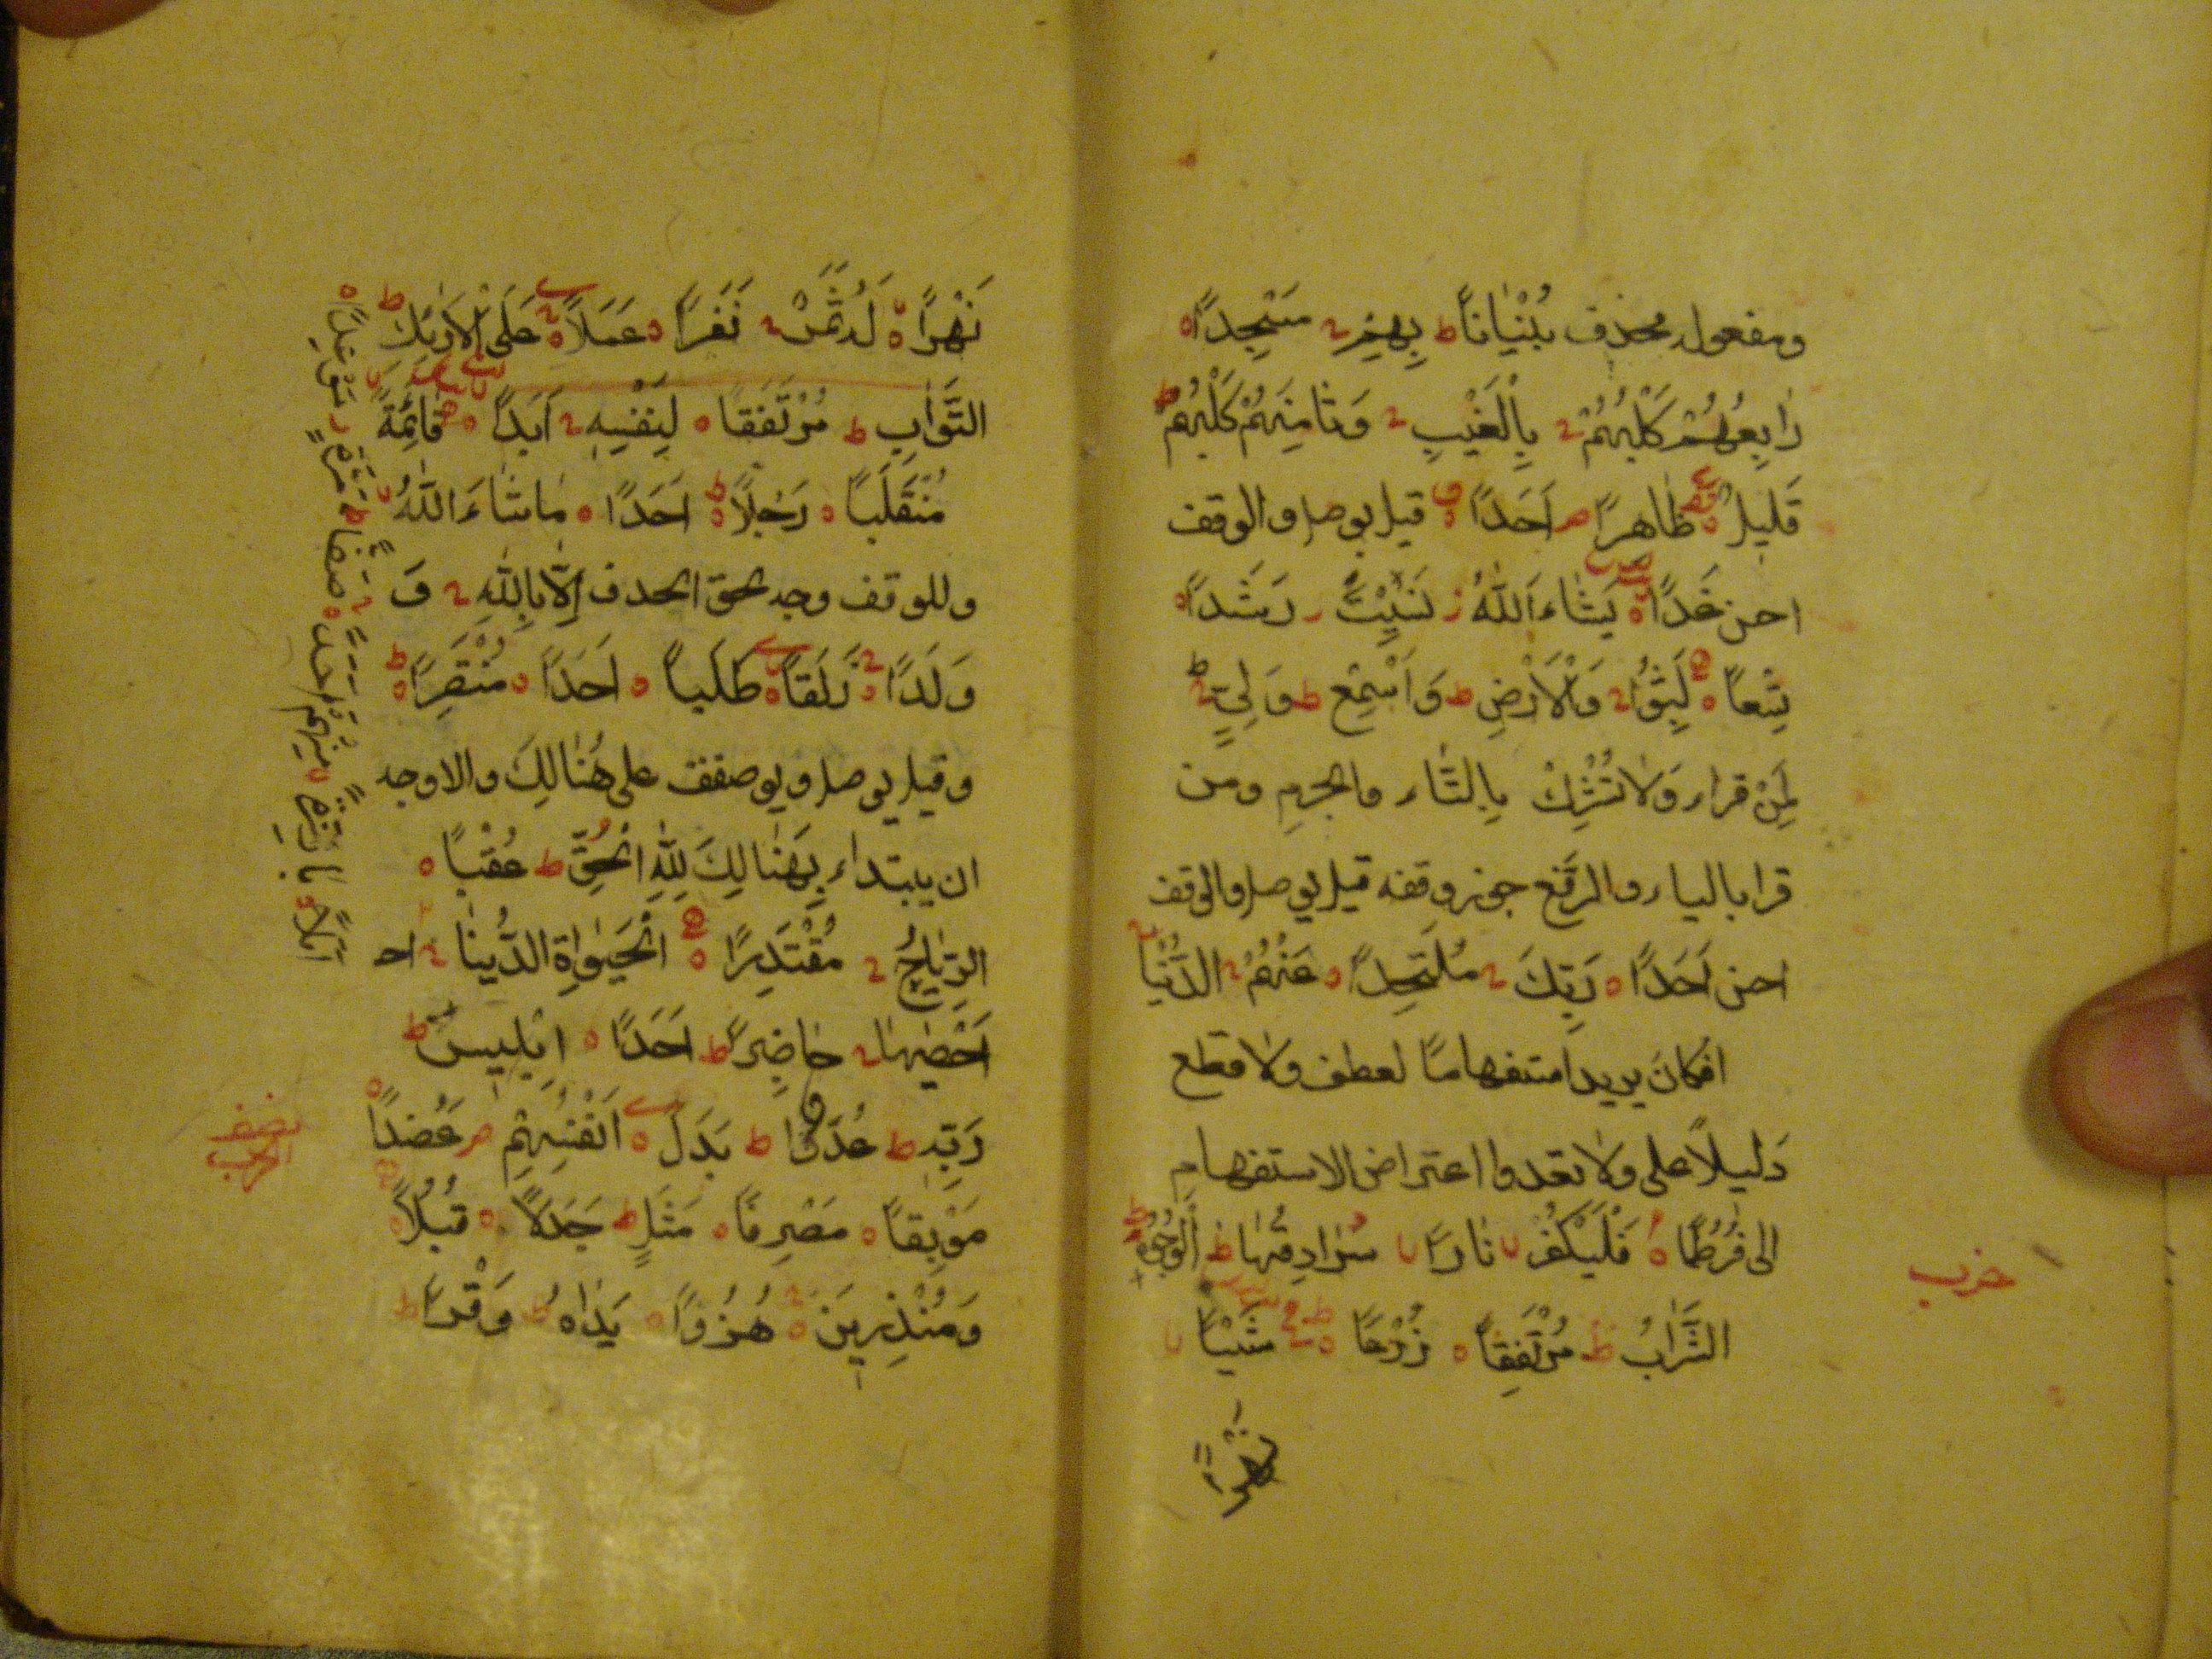 ومفعوله محذف بُنْيَانًا ط بِهِمْ مَسْجِدًا ه
رَابِعُهُمْ كَلْبُهُمْ بِالْغَيْبِ وَثَامِنُهُمْ كَلْبُهُمْ ط
قَلِيلٌ ظَاهِرًا ص اَحَدًا قيل يوصل والوقف
احسن غَدًا ه يَشَاءَ اللّٰهُ ز نَسِيْتَ رَشَدًا ه
تِسْعًا ه لَبِثُوا وَالْاَرْضِ ط وَاَسْمِعْ ط وَلِيٍّ ط
لِمَنْ قراء وَلَا تُشْرِكْ بِالتَّاء والجزمِ ومن
قرا بالياء والرفع جوز وقفه قيل يوصل والوقف
احسن اَحَدًا ه رَبِّكَ مُلْتَحَدًا ه عَنْهُمْ الدُّنْيَا
افكان يريد استفهامًا لعطف ولا قطع
دَليلًا على ولا تعدوا اعتراض الاستفهام
الى فُرُطًا ه فَلْيَكْفُرْ نَارًا سُرَادِقُهَا ط الْوُجُوْهَ ط
الشَّرَابُ ط مُرْتَفَقًا ه زَرْعًا ه شَيْئًا
نَهْرًا
حزب
نَهْرًا ه لَهُ ثَمَرٌ نَفَرًا ه عَمَلًا ه عَلَى الْاَرَائِكِ ط
الثَّوَابِ ط مُرْتَفَقًا ه لِنَفْسِهِ اَبَدًا ه قَائِمَةً
مُنْقَلَبًا ه رَجُلًا ط اَحَدًا ه مَا شَاءَ اللّٰهُ
وللوقف وجه لحق الحذف اِلَّا بِاللّٰهِ وَ
وَلَدًا زَلَقًا ه طَلَبًا ه اَحَدًا ه مُنْتَصِرًا ط
وقيل يوصل ويوقف على هُنَالِكَ والاوجه
ان يبتداء بِهُنَالِكَ لِلّٰهِ الْحَقِّ ط عُقْبًا ه
الرِّيَاحُ مُقْتَدِرًا ه الْحَيٰوةِ الدُّنْيَا احـ
اَحْصٰيهَا حَاضِرًا ط اَحَدًا ه اِبْلِيسَ ط
رَبِّهِ ط عَدُوٌّ ط بَدَلًا ه اَنْفُسِهِمْ ص عَضُدًا ه
مَوْبِقًا ه مَصْرِفًا ه مَثَلٍ ط جَدَلًا ه قُبُلًا ه
وَمُنْذِرِينَ هُزُوًا ه يَدَاهُ ط وَقْرًا ط
نصف الحزب
اَمَلًا ه